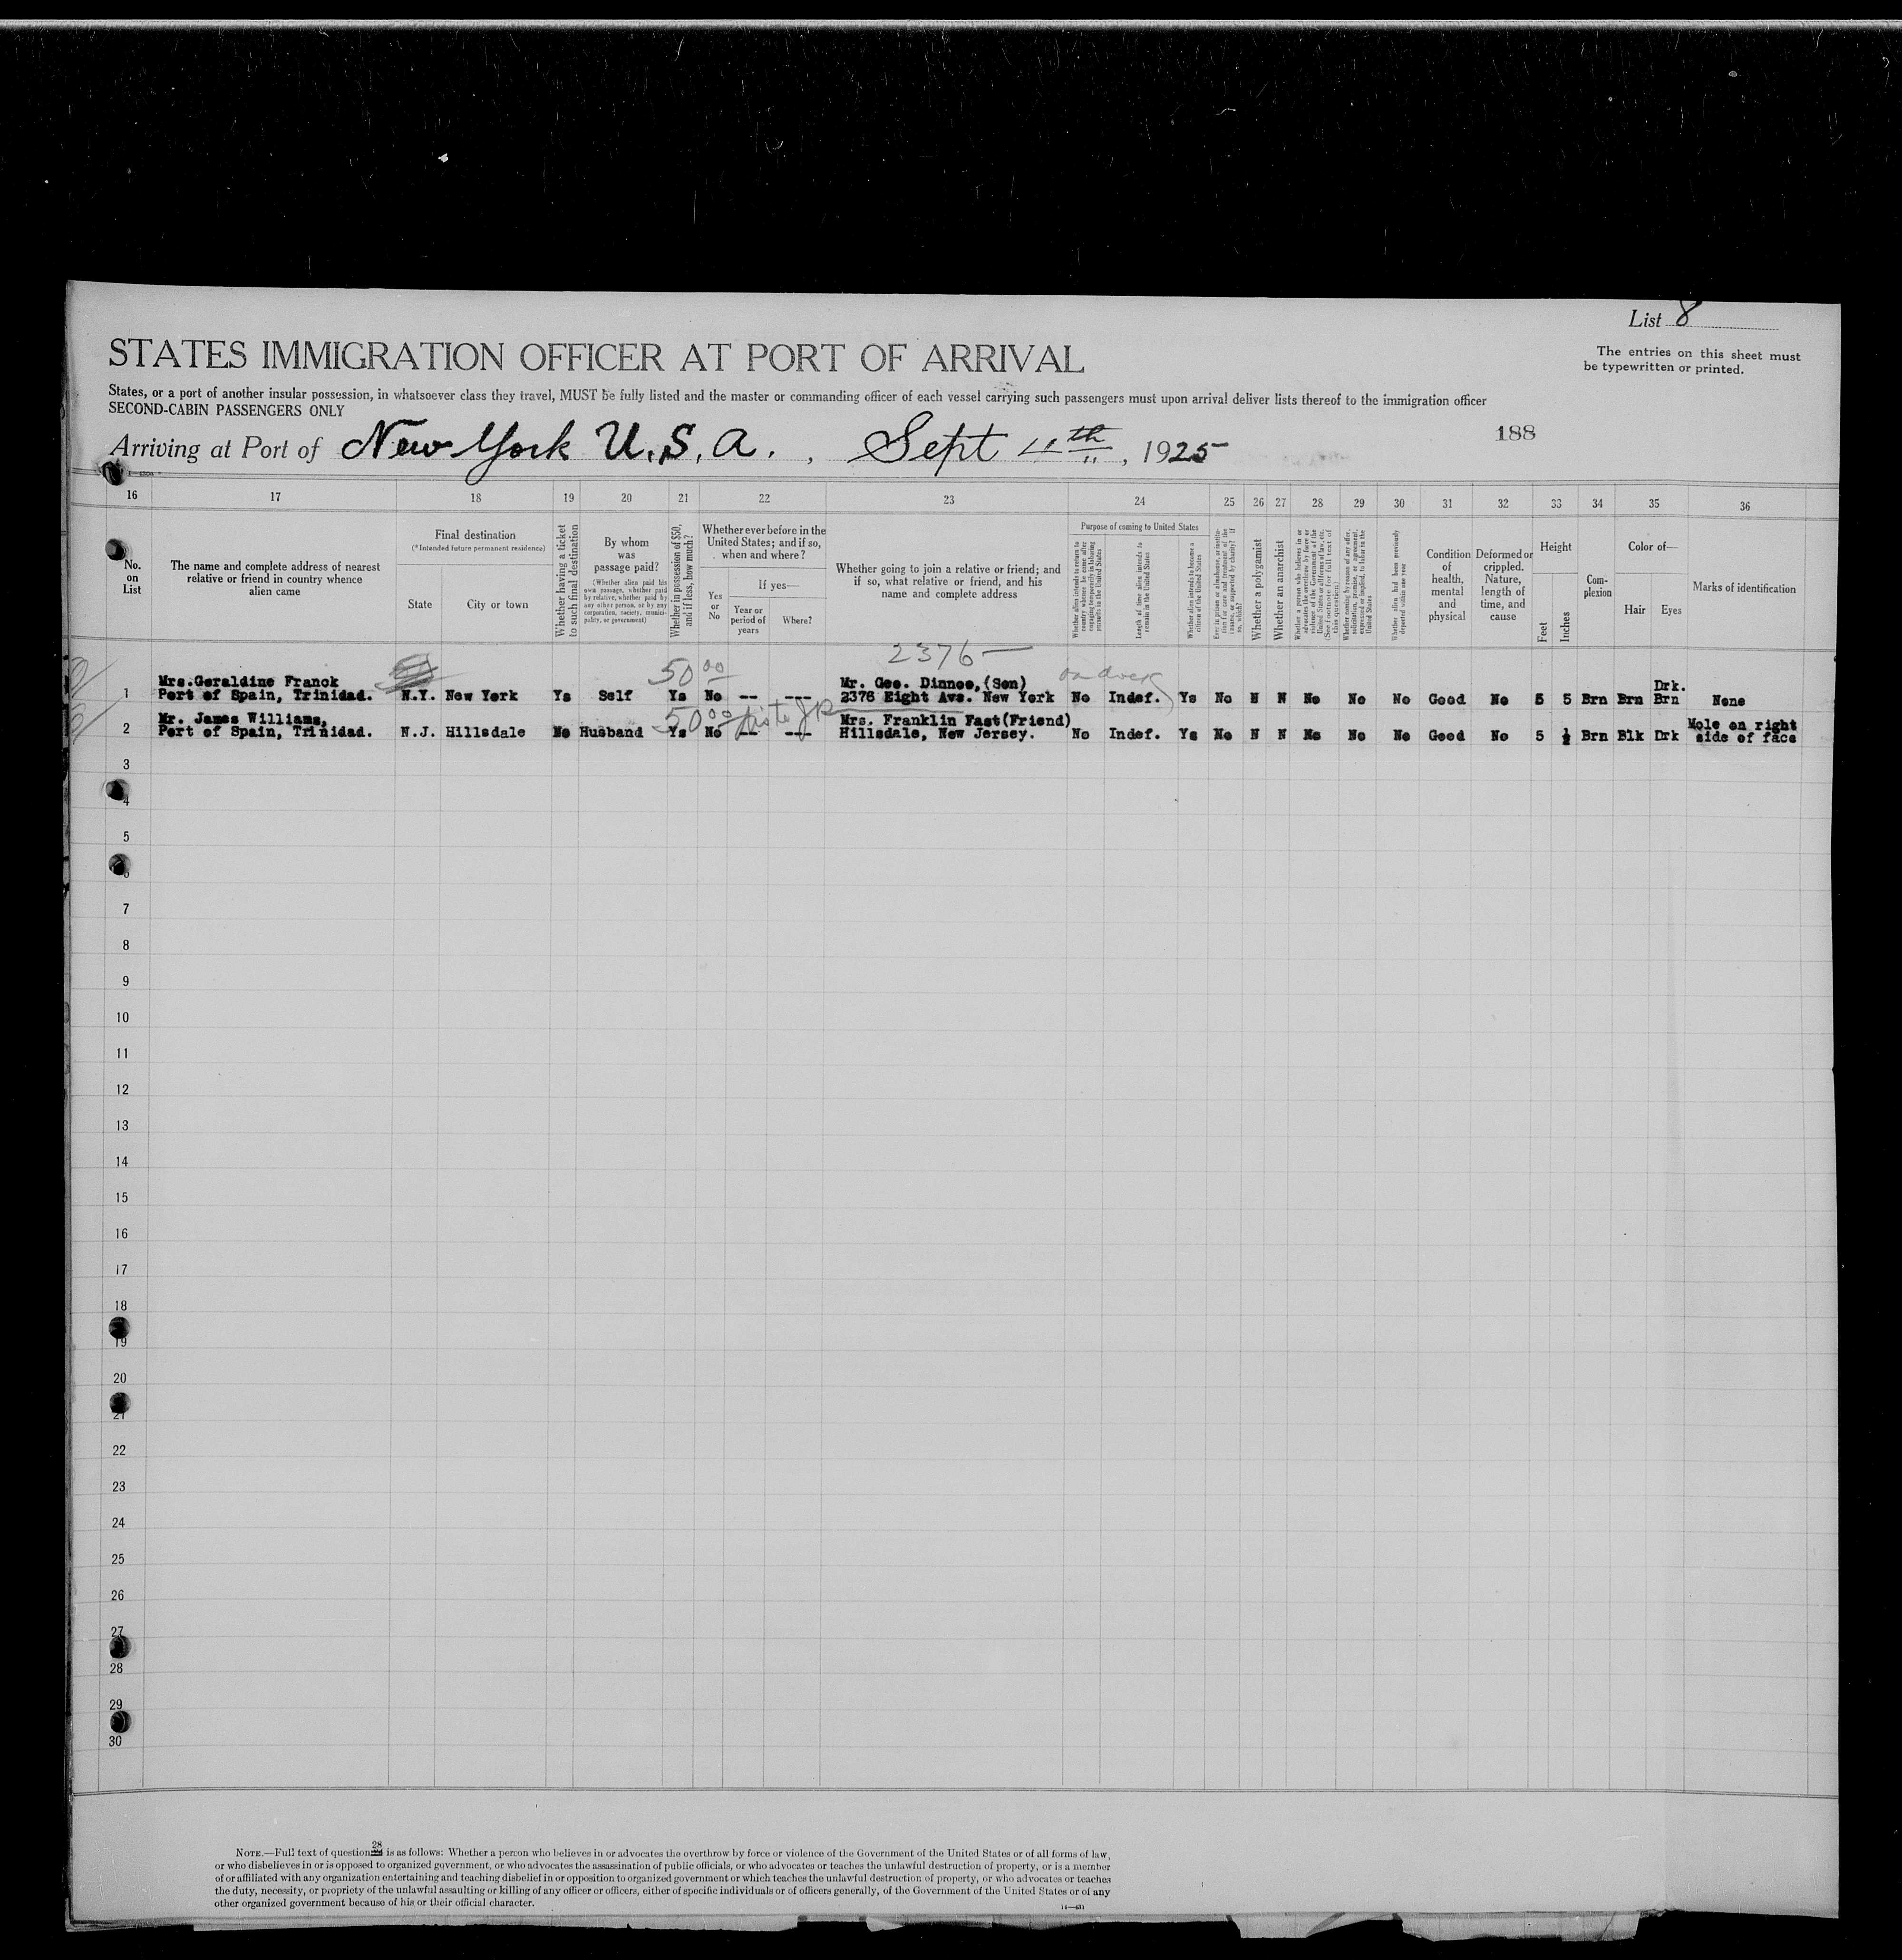 List 8
STATES IMMIGRATION OFFICER AT PORT OF ARRIVAL
The entries on this sheet must
be typewritten or printed.
States, or a port of another insular possession, in whatsoever class they travel, MUST be fully listed and the master or commanding officer of each vessel carrying such passengers must upon arrival deliver lists thereof to the immigration officer
SECOND-CABIN PASSENGERS ONLY
Arriving at Port of New York U.S.A. , Sept 11th, 1925
188
16 17 18 19 20 21 22 23 24 25 26 27 28 29 30 31 32 33 34 35 36
No.
on
List
The name and complete address of nearest
relative or friend in country whence
alien came
Final destination
(*Intended future permanent residence)
State City or town
Whether having a ticket
to such final destination
By whom
was
passage paid?
(Whether alien paid his
own passage, whether paid
by relative, whether paid by
any other person, or by any
corporation, society, munici-
pality, or government)
Whether in possession of $50,
and if less, how much?
Whether ever before in the
United States; and if so,
when and where?
Yes
or
No
If yes—
Year or
period of
years
Where?
Whether going to join a relative or friend; and
if so, what relative or friend, and his
name and complete address
Purpose of coming to United States
Whether alien intends to return to
country whence he came after
engaging temporarily in laboring
pursuits in the United States
Length of time alien intends to
remain in the United States
Whether alien intends to become a
citizen of the United States
Ever in prison or almshouse, or institu-
tion for care and treatment of the
insane, or supported by charity? If
so, which?
Whether a polygamist
Whether an anarchist
Whether a person who believes in or
advocates the overthrow by force or
violence of the Government of the
United States or all forms of law, etc.
(See footnote for full text of
this question)
Whether coming by reason of any offer,
solicitation, promise, or agreement,
expressed or implied, to labor in the
United States
Whether alien had been previously
deported within one year
Condition
of
health,
mental
and
physical
Deformed or
crippled.
Nature,
length of
time, and
cause
Height
Feet
Inches
Com-
plexion
Color of—
Hair Eyes
Marks of identification
2376 —
50 00
Mrs.Geraldine Franck Mr. Geo. Dinnoe,(Son) Drk.
1 Port of Spain, Trinidad. N.Y. New York Ys Self Ys No -- --- 2376 Eight Ave. New York No Indef. Ys No N N No No No Good No 5 5 Brn Brn Brn None
50 00
Mr. James Williams, Mrs. Franklin Fast(Friend) Mole on right
2 Port of Spain, Trinidad. N.J. Hillsdale No Husband Ys No -- --- Hillsdale, New Jersey. No Indef. Ys No N N No No No Good No 5 ½ Brn Blk Drk side of face
3
4
5
6
7
8
9
10
11
12
13
14
15
16
17
18
19
20
21
22
23
24
25
26
27
28
29
30
28
NOTE.—Full text of question is as follows: Whether a person who believes in or advocates the overthrow by force or violence of the Government of the United States or of all forms of law,
or who disbelieves in or is opposed to organized government, or who advocates the assassination of public officials, or who advocates or teaches the unlawful destruction of property, or is a member
of or affiliated with any organization entertaining and teaching disbelief in or opposition to organized government or which teaches the unlawful destruction of property, or who advocates or teaches
the duty, necessity, or propriety of the unlawful assaulting or killing of any officer or officers, either of specific individuals or of officers generally, of the Government of the United States or of any
other organized government because of his or their official character.